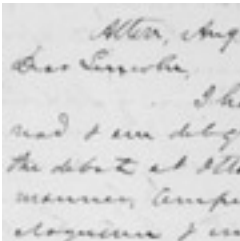 Alton, Aug
Dear Lincoln,
I h
read & am delig
the debate at Otta
manner, temper
eloquence &